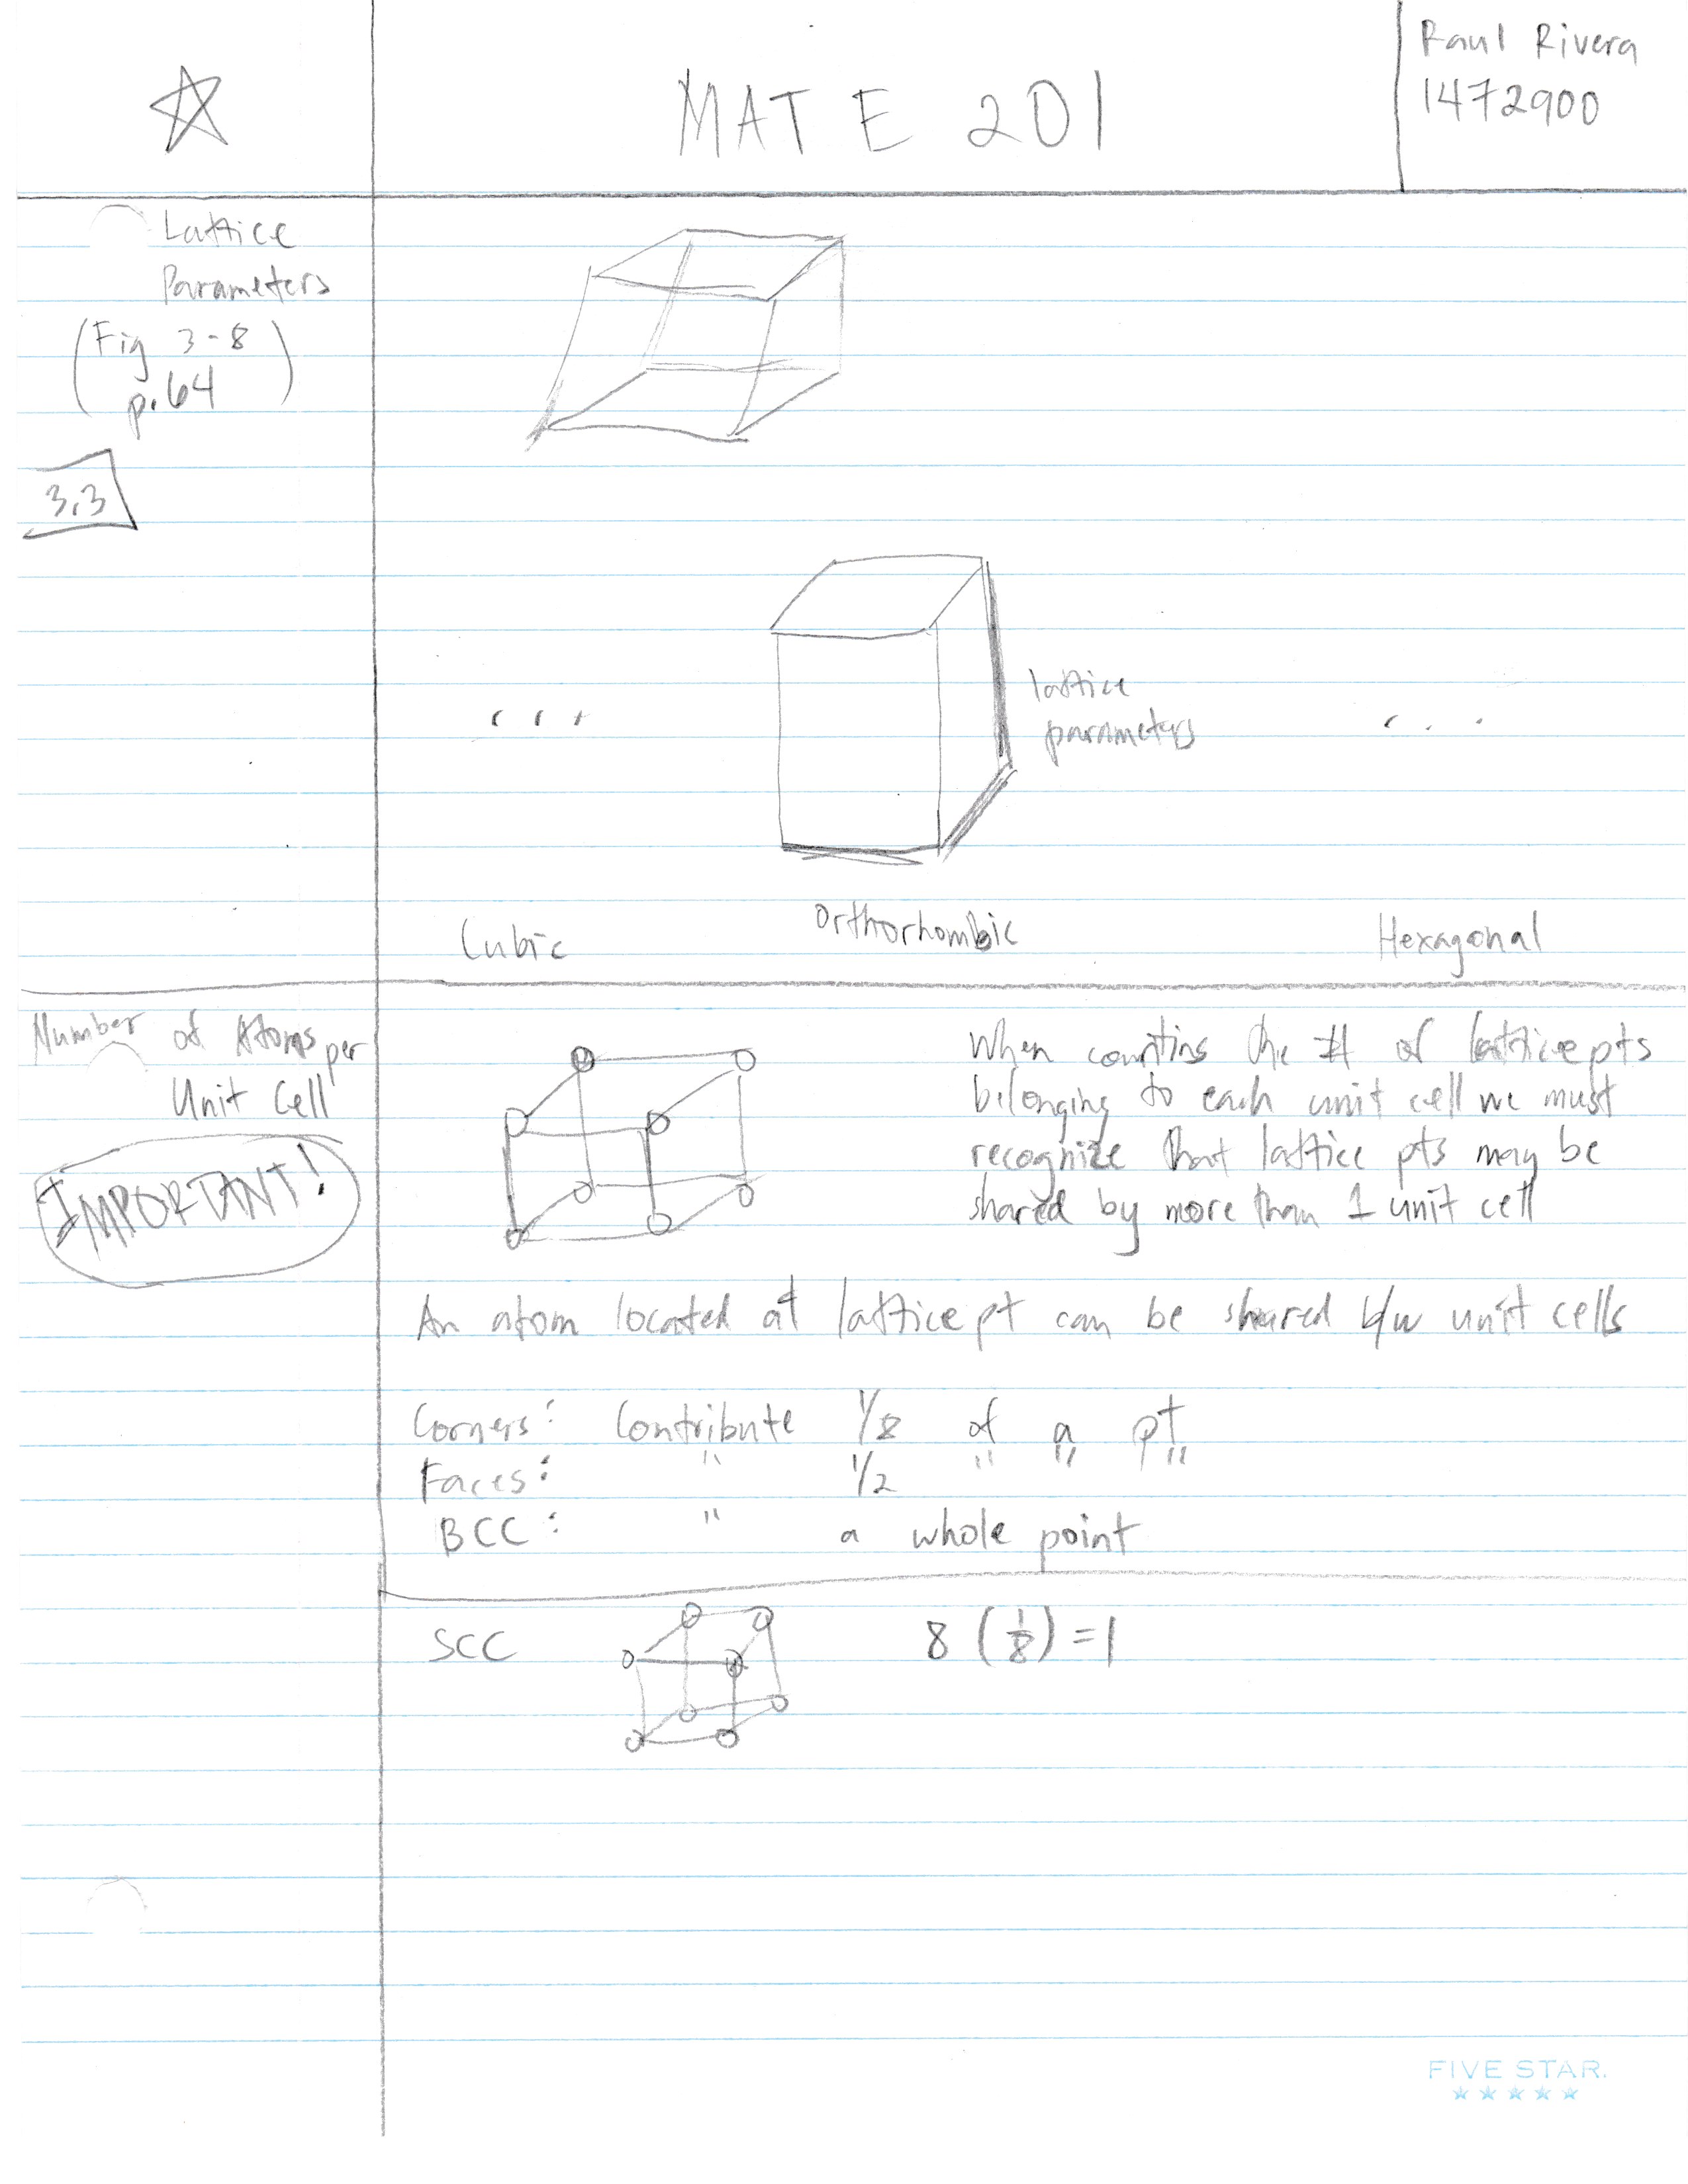 MAT E 201
Raul Rivera
1472900
Lattice
Parameters
(Fig 3-8
p.64)
3.3
lattice
parameters
. . .
. . .
Cubic
Orthorhombic
Hexagonal
Number of Atoms per
Unit Cell
IMPORTANT!
When counting the # of lattice pts
belonging to each unit cell we must
recognize that lattice pts may be
shared by more than 1 unit cell
An atom located at lattice pt can be shared b/w unit cells
Corners: Contribute 1/8 of a pt
Faces: " 1/2 " " "
BCC: " a whole point
SCC 8 (1/8) = 1
FIVE STAR.